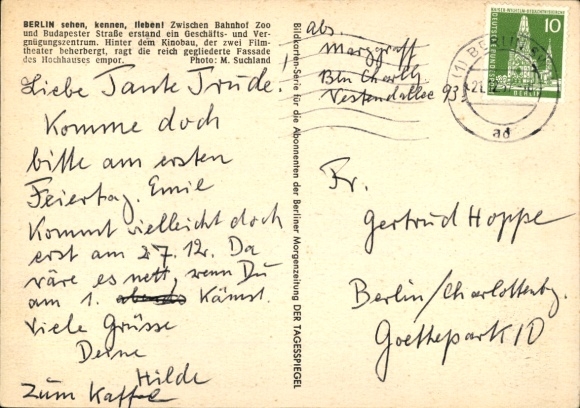 BERLIN sehen, kennen, lieben! Zwischen Bahnhof Zoo
und Budapester Straße erstand ein Geschäfts- und Ver-
gnügungszentrum. Hinter dem Kinobau, der zwei Film-
theater beherbergt, ragt die reich gegliederte Fassade
des Hochhauses empor. Photo: M. Suchland
Liebe Tante Trude!
Komme doch
bitte am ersten
Feiertag. Emil
Kommt vielleicht doch
erst am 27. 12. Da
wäre es nett, wenn Du
am 1. abends Kämst.
Viele Grüsse
Deine
Hilde
Zum Kaffee
Bildkarten-Serie für die Abonnenten der Berliner Morgenzeitung DER TAGESSPIEGEL
Abs.
Marggraff
Bln Charlb
93
10
DEUTSCHE BUNDESPOST
BERLIN
(1) BERLIN
ad
Fr.
Gertrud Hoppe
Berlin/Charlottenbg.
Goethepark 10